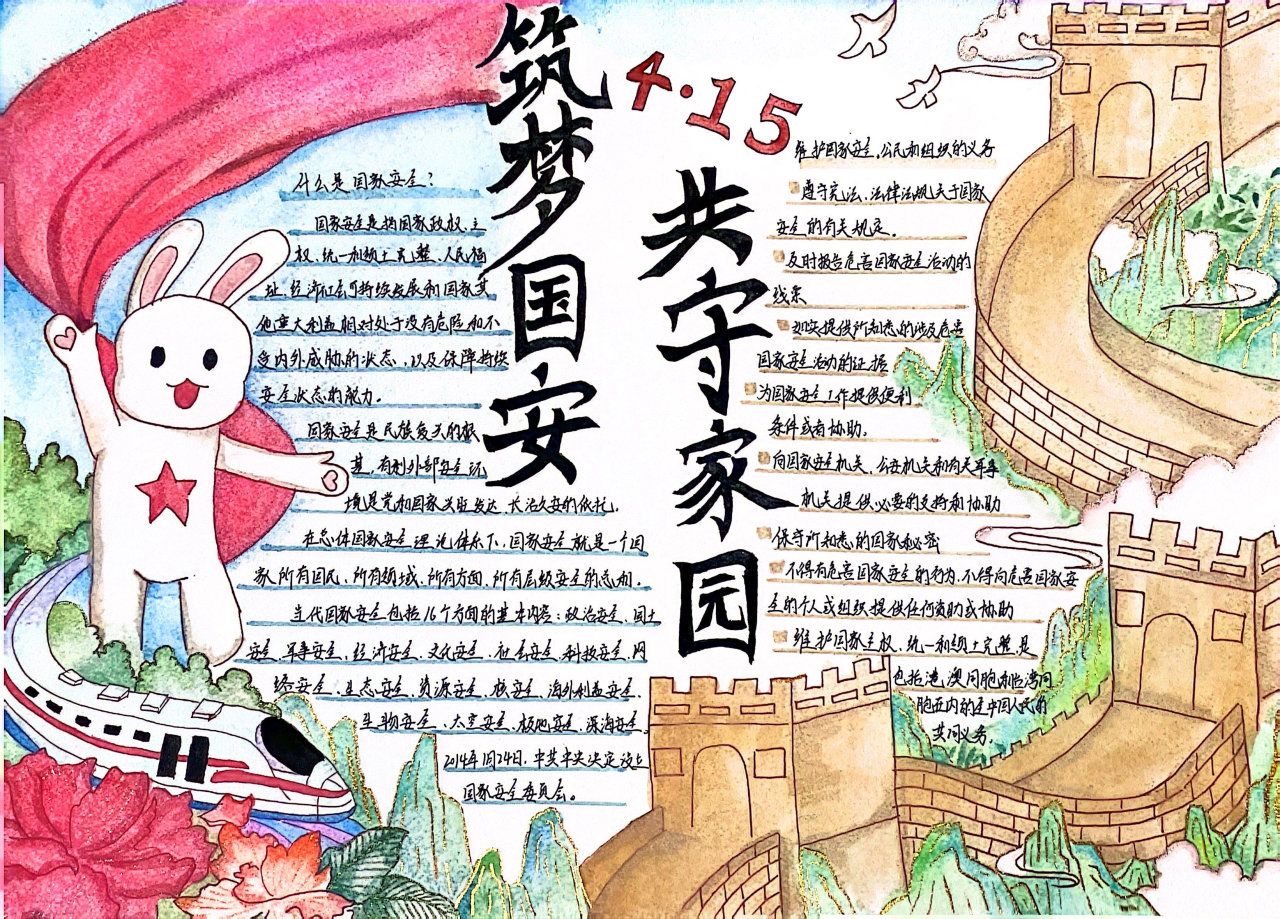 筑梦国安
4·15
共守家园
什么是国家安全?
国家安全是指国家政权、主
权、统一和领土完整、人民福
祉、经济社会可持续发展和国家其
他重大利益相对处于没有危险和不
受内外威胁的状态,以及保障持续
安全状态的能力。
国家安全是民族复兴的根
基,有利外部安全环
境是党和国家兴旺发达、长治久安的依托。
在总体国家安全理论体系下,国家安全就是一个国
家所有国民、所有领域、所有方面、所有层级安全的总和。
当代国家安全包括16个方面的基本内容:政治安全、国土
安全、军事安全、经济安全、文化安全、社会安全、科技安全、网
络安全、生态安全、资源安全、核安全、海外利益安全、
生物安全、太空安全、极地安全、深海安全。
2014年1月24日,中共中央决定设立
国家安全委员会。
维护国家安全,公民和组织的义务
遵守宪法、法律法规关于国家
安全的有关规定。
及时报告危害国家安全活动的
线索
如实提供所知悉的涉及危害
国家安全活动的证据
为国家安全工作提供便利
条件或者协助。
向国家安全机关、公安机关和有关军事
机关提供必要的支持和协助
保守所知悉的国家秘密
不得有危害国家安全的行为,不得向危害国家安
全的个人或组织提供任何资助或协助
维护国家主权、统一和领土完整是
包括港、澳同胞和台湾同
胞在内的全中国人民的
共同义务。